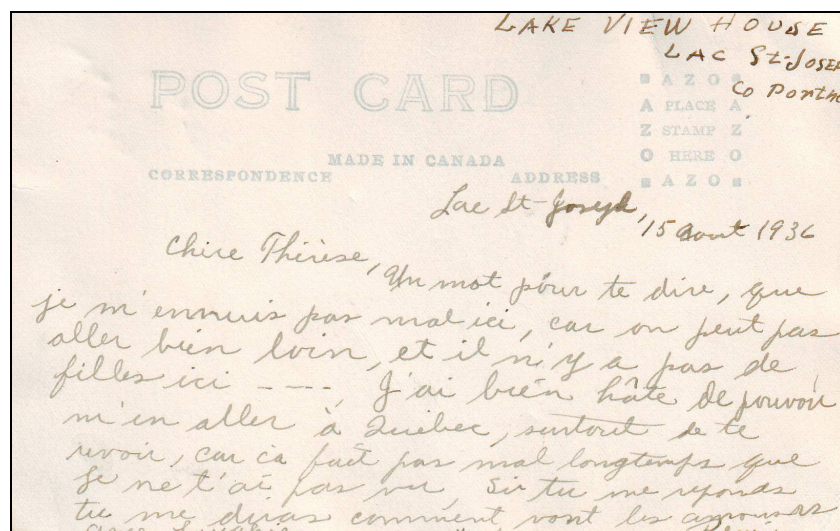 LAKE VIEW HOUSE
LAC St-JOSE
Co Portn
POST CARD
A Z O
A PLACE A
Z STAMP Z
O HERE O
A Z O
MADE IN CANADA
CORRESPONDENCE ADDRESS
Lac St-Joseph,
15 aout 1936
Chère Thérèse,
Un mot pour te dire, que
je m'ennuis pas mal ici, car on peut pas
aller bien loin, et il n'y a pas de
filles ici ----, J'ai bien hâte de pouvoir
m'en aller à Québec, surtout de te
revoir, car ca fait pas mal longtemps que
je ne t'ai pas vu, Si tu me reponds
tu me diras comment vont les amours
avec